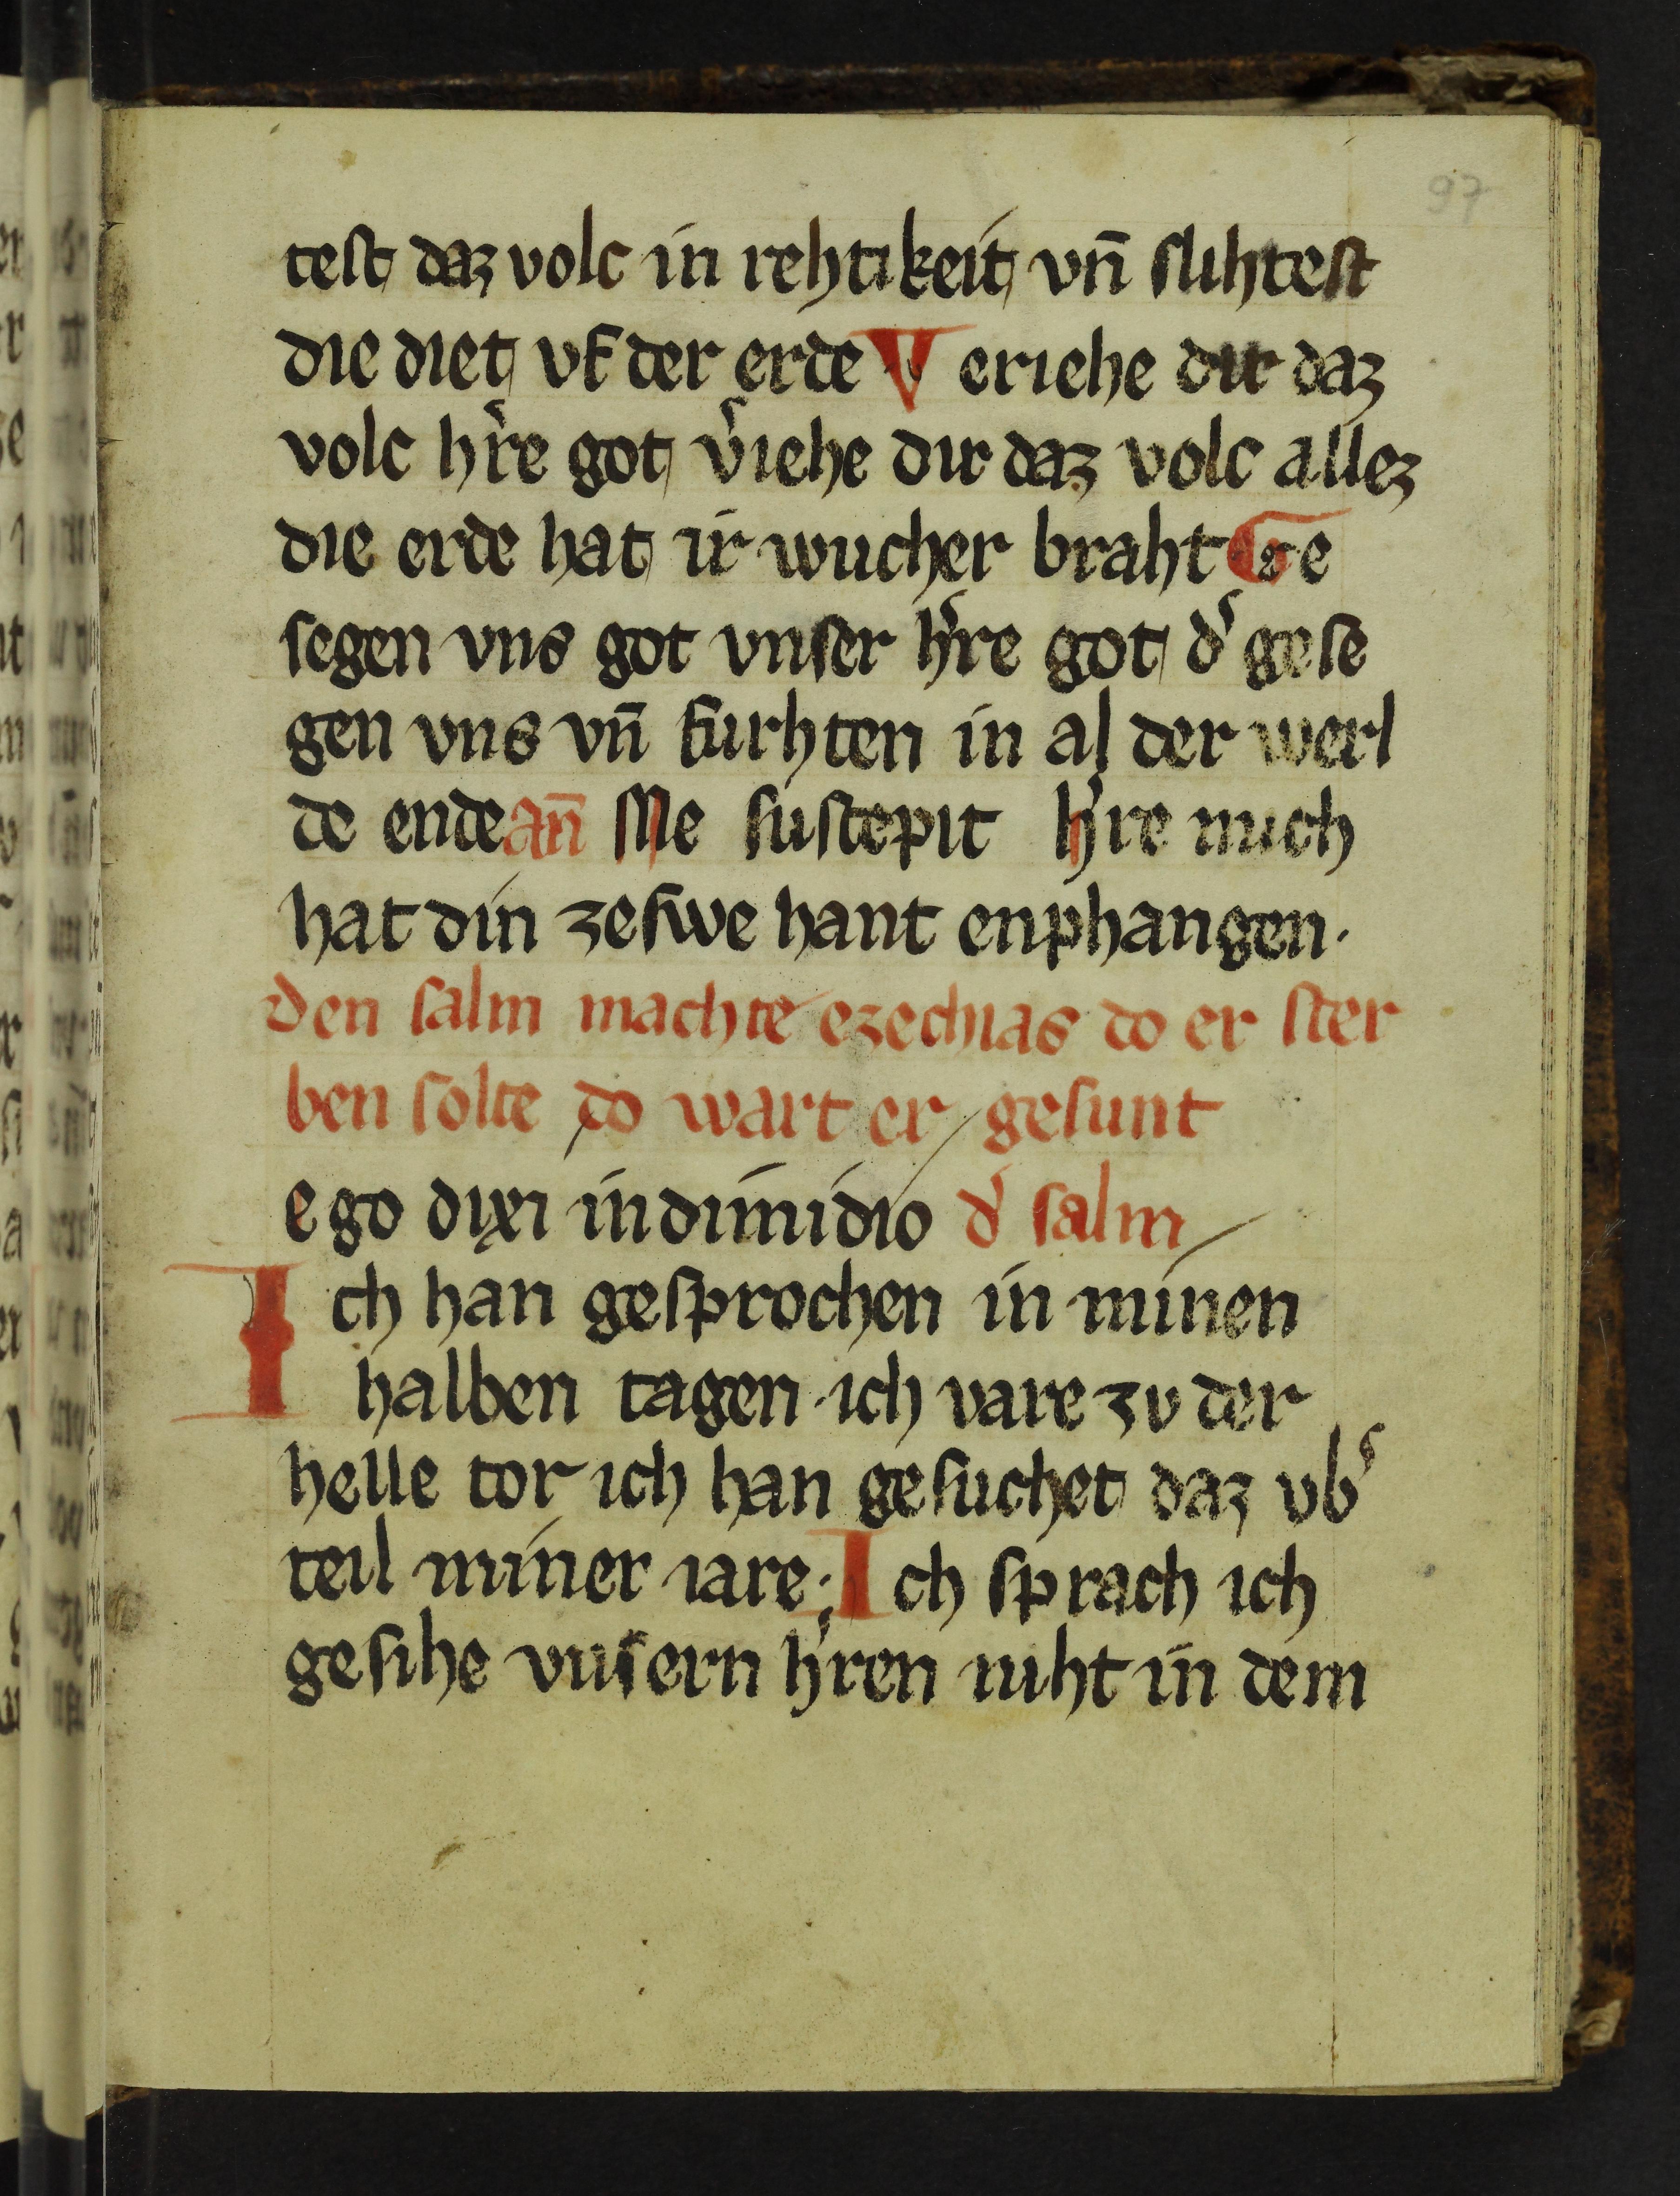 97
teſt daz volc in rehtikeit vn̄ ſlihteſt
die diet vf der erde V eriehe dir daz
volc h͛re got v͛iehe dir daz volc allez
die erde hat ir wucher braht Ge
ſegen vns got vnſer h͛re got d͛ geſe
gen vns vn̄ furhten in al der werl
de ende an̄ Me ſuſcepit h͛re mich
hat din zeſwe hant enphangen·
den ſalm machte ezechias do er ſter
ben ſolte do wart er geſunt
ego dixi in dimidio d͛ ſalm
Ich han geſprochen in minen
halben tagen · ich vare zv der
helle tor ich han geſuchet daz vb͛
teil miner iare · Ich ſprach ich
geſihe vnſern h͛ren niht in dem